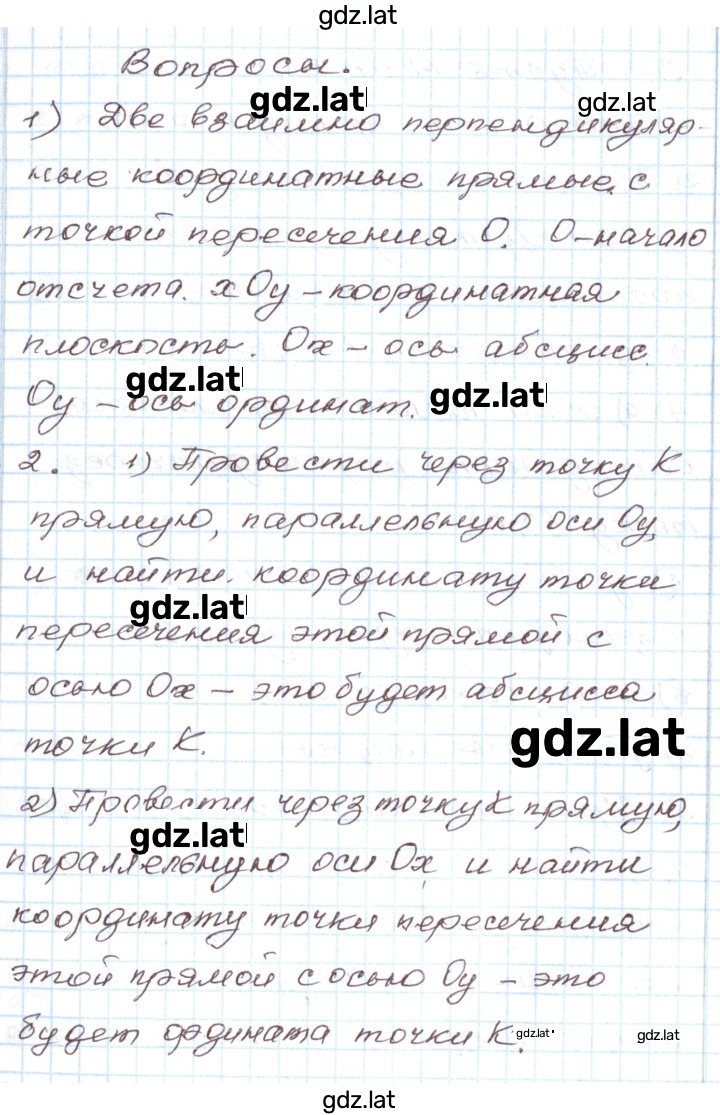 gdz.lat
Вопросы.
gdz.lat gdz.lat
1) Две взаимно перпендикуляр-
ные координатные прямые с
точкой пересечения О. О-начало
отсчета. xOy - координатная
плоскость. Ox - ось абсцисс.
gdz.lat gdz.lat
Oy - ось ординат.
2. 1) Провести через точку К
прямую, параллельную оси Oy,
и найти координату точки
gdz.lat
пересечения этой прямой с
осью Ox - это будет абсцисса
точки К.
gdz.lat
2) Провести через точку К прямую,
gdz.lat
параллельную оси Ox и найти
координату точки пересечения
этой прямой с осью Oy - это
будет ордината точки К.
gdz.lat gdz.lat
gdz.lat